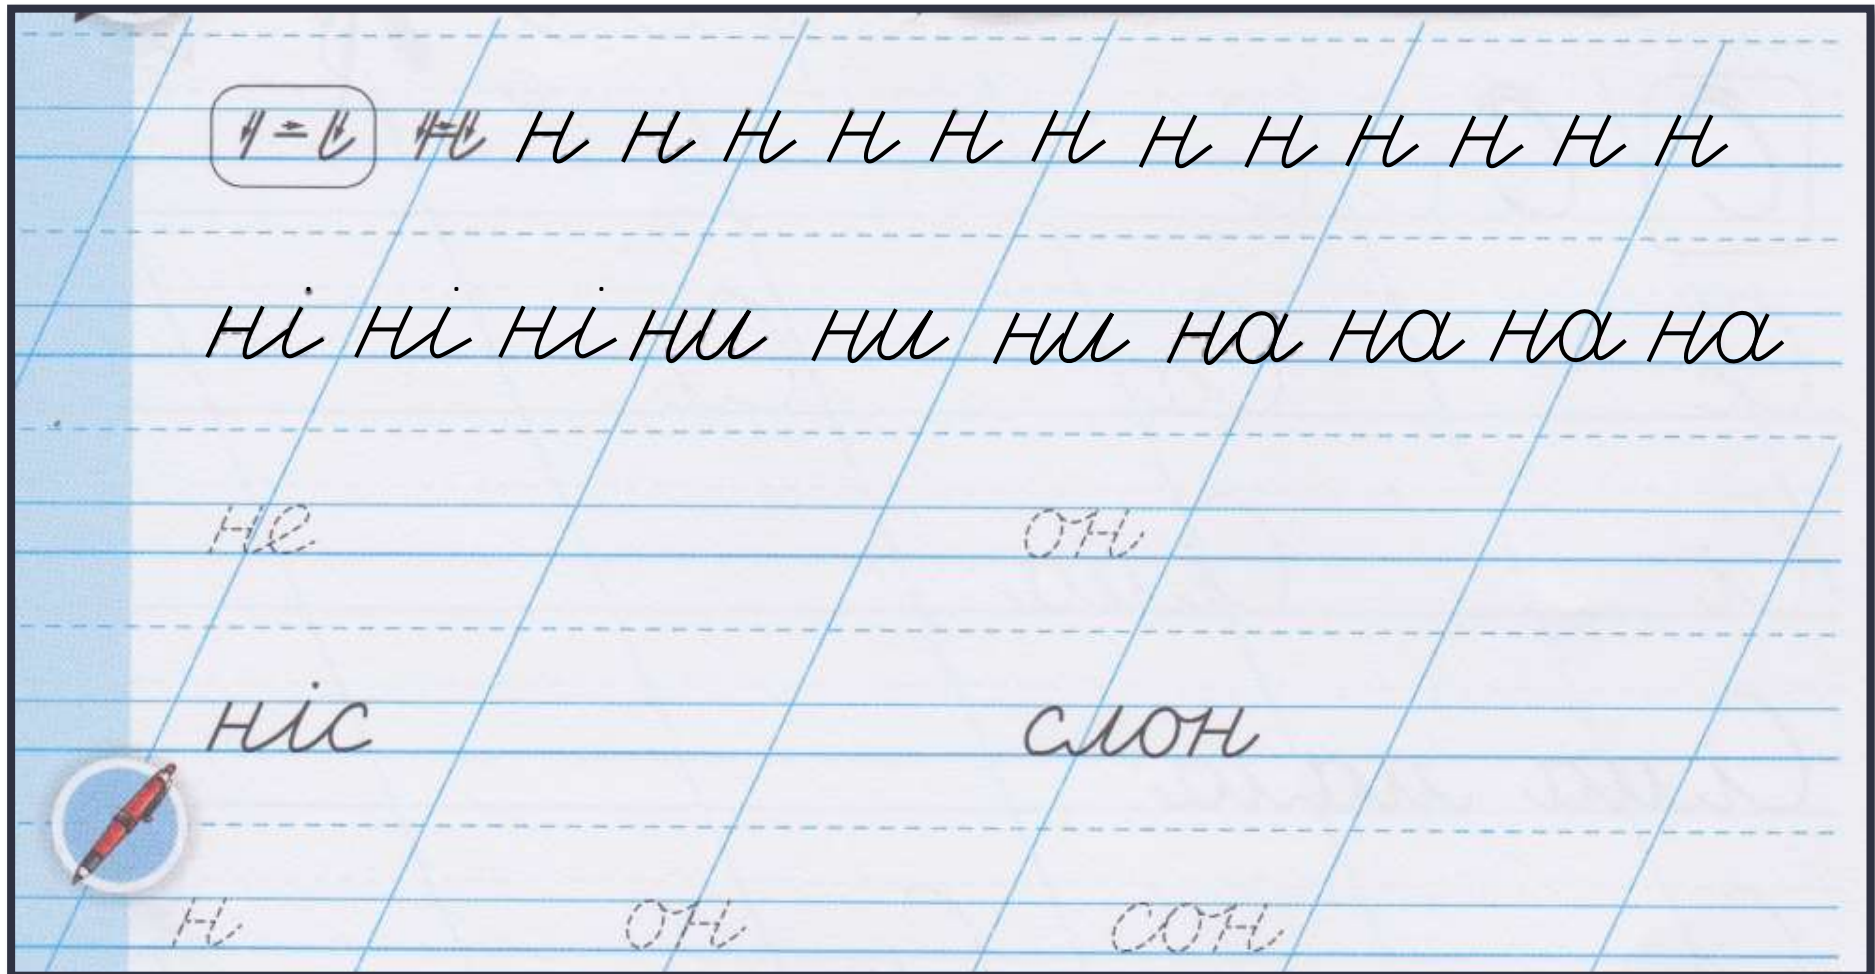 н н н н н н н н н н н н н
ні ні ні ни ни ни на на на на
не он
ніс слон
н он сон